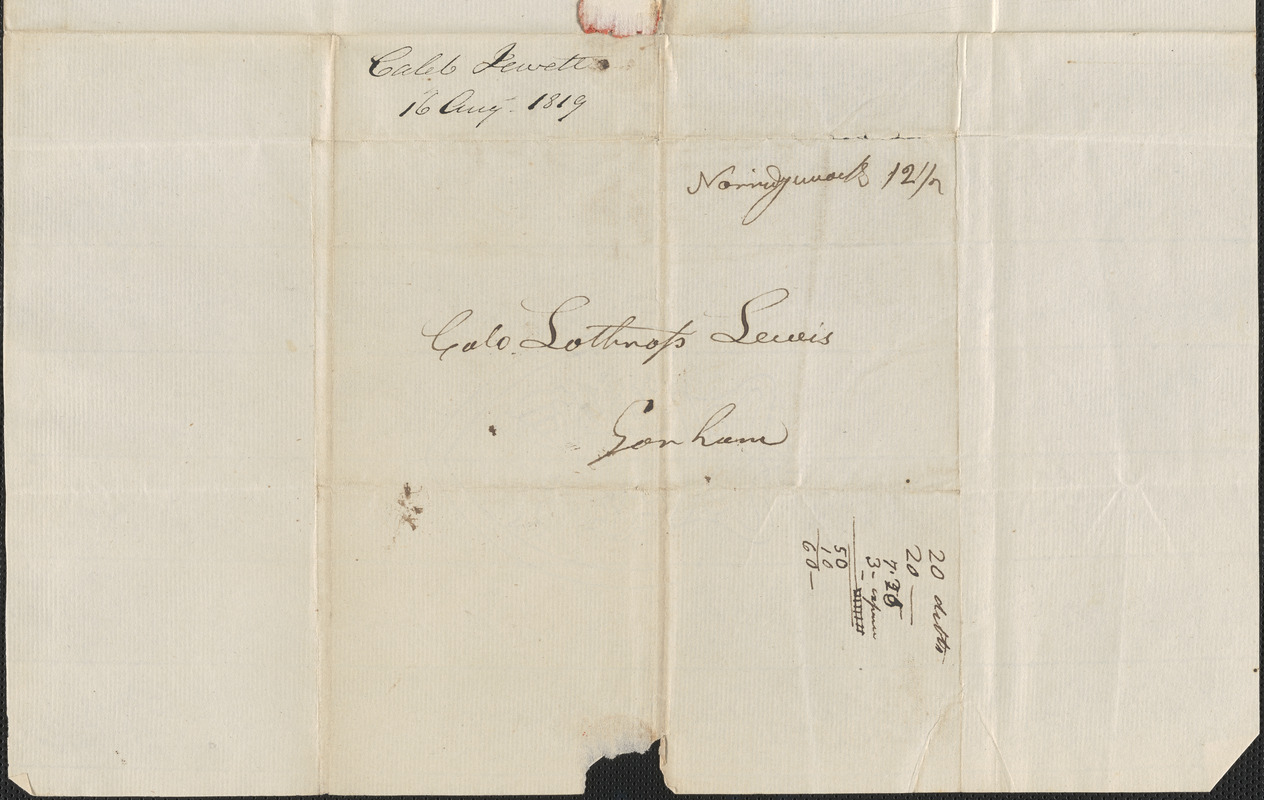 Caleb Jewett
16 Aug. 1819
Norridgwock 12 1/2
Colo. Lothrop Lewis
Gorham
20 debts
20 —
7.28
3 - expence
50
10
60 —